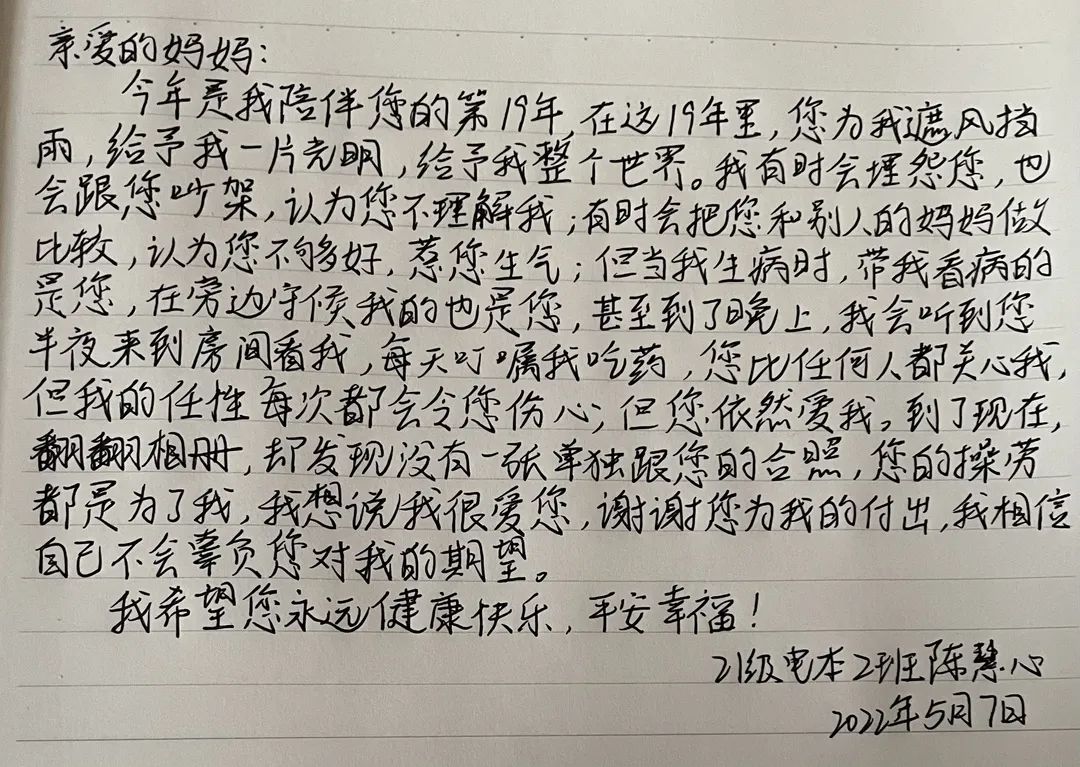 亲爱的妈妈：
今年是我陪伴您的第19年，在这19年里，您为我遮风挡
雨，给予我一片光明，给予我整个世界。我有时会埋怨您，也
会跟您吵架，认为您不理解我；有时会把您和别人的妈妈做
比较，认为您不够多好，惹您生气；但当我生病时，带我看病的
是您，在旁边守候我的也是您，甚至到了晚上，我会听到您
半夜来到房间看我，每天叮嘱我吃药，您比任何人都关心我，
但我的任性每次都会令您伤心；但您依然爱我。到了现在，
翻翻相册，却发现没有一张单独跟您的合照，您的操劳
都是为了我，我想说我很爱您，谢谢您为我的付出，我相信
自己不会辜负您对我的期望。
我希望您永远健康快乐，平安幸福！
21级电本2班陈慧心
2022年5月7日